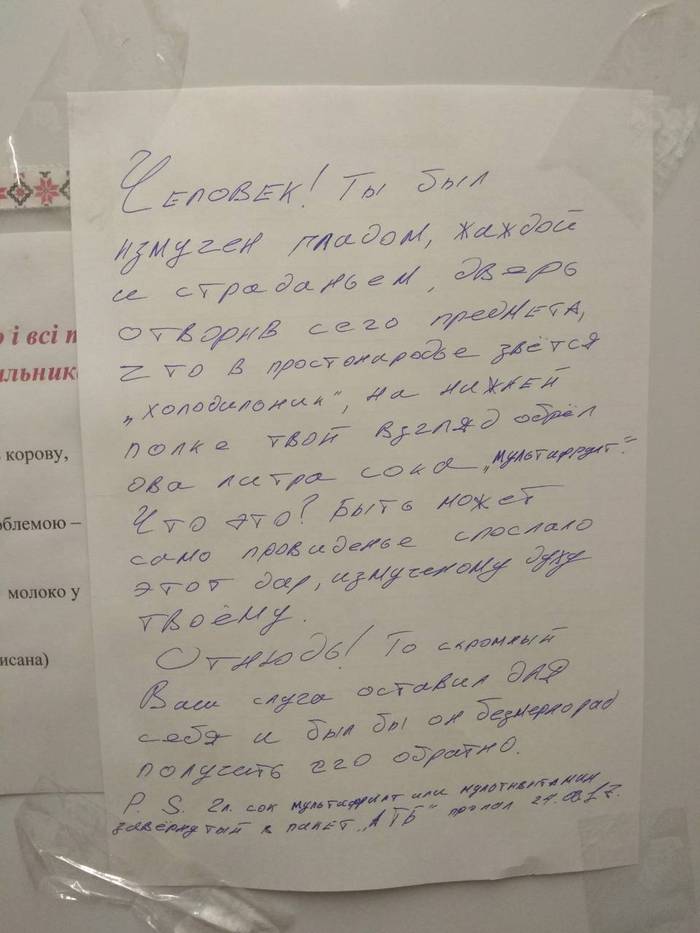 Человек! Ты был
измучен гладом, жаждой
и страданьем, дверь
отворив сего предмета,
что в простонародье звётся
„холодильник", на нижней
полке твой взгляд обрёл
два литра сока „мультифрукт".
Что это? Быть может
само провиденье спослало
этот дар, измученому духу
твоему.
Отнюдь! То скромный
Ваш слуга оставил для
себя и был бы он безмерно рад
получить его обратно.
P. S. 2л. сок мультифрукт или мультивитамин
завёрнутый в пакет „АТБ" пропал 21.08.17.
о і всі п
льник
корову,
облемою –
молоко у
исана)